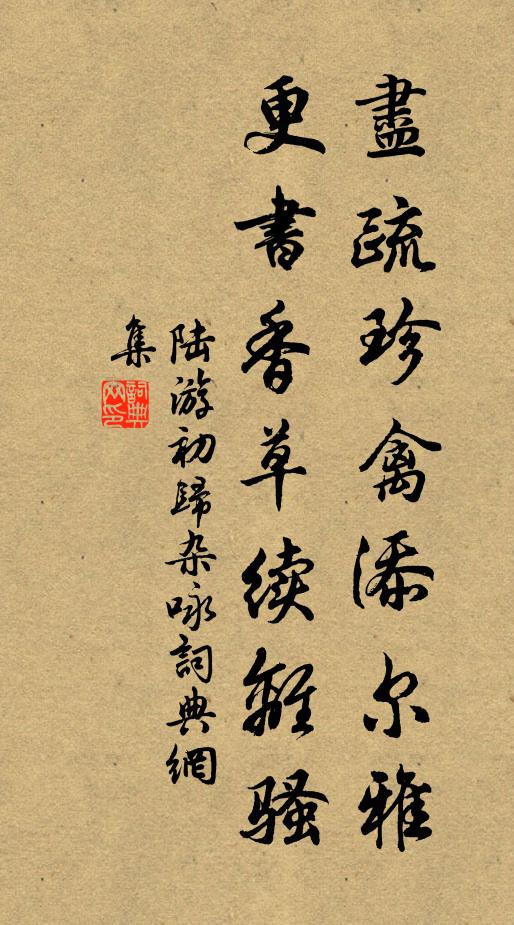 盡疏珍禽添尔雅
更書香草续離騷
陆游初歸杂咏詞典網
集
詞典网印